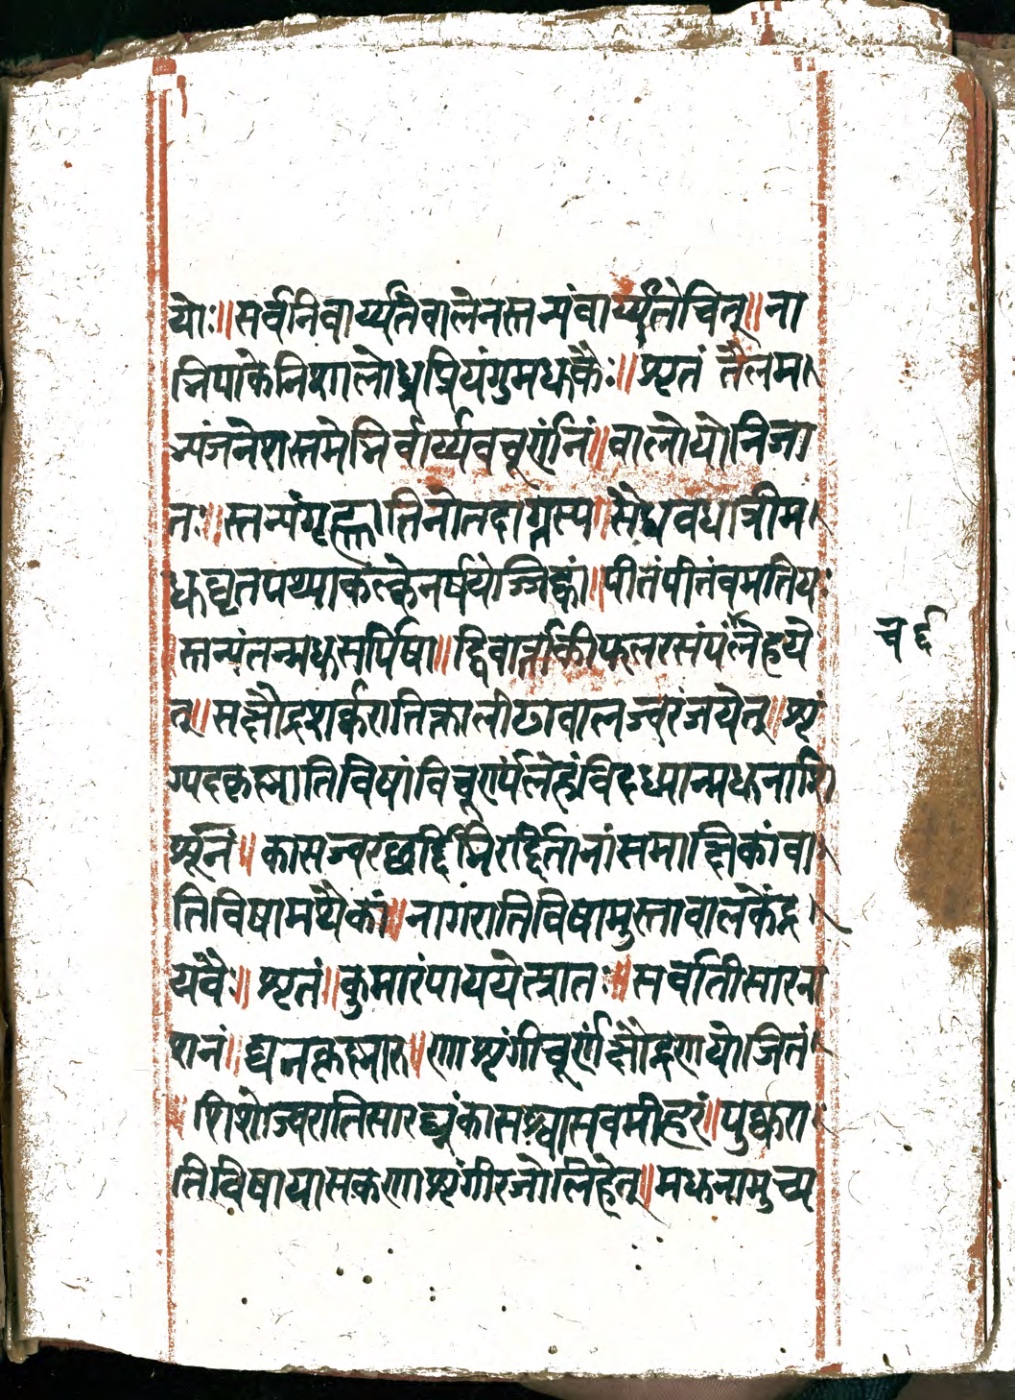 योः॥सर्वनिवार्य्यतेवालेनस्तन्यंवार्य्यंतेचित्॥ना
भिपाकेनिशालोध्रप्रियंगुमधुकैः॥शृतं तैलम
भ्यंजनेशस्तमेभिर्वार्य्यवचूर्णनं॥वालोयोनिजा
तः॥स्तन्यंगृह्णातिनोतदाग्नस्य॥सैंधवधात्रीम
धुघृतपथ्याकल्केनर्घषयेज्जिह्वां॥पीतंपीतंवमतिय
स्तन्यंतन्मधुसर्पिषा॥द्विवार्त्ताकीफलरसंपंलेहये
त्॥सक्षौद्रशर्करातिक्तालीढावालज्वरंजयेत्॥शृं
ग्पदकृष्णातिविषांविचूर्णपलेहंविदध्यान्मधुनाशि
शूनं॥कासज्वरछर्द्दिभिरर्द्दितानांसमाक्षिकांवा
तिविषामथैकां॥नागरातिविषामुस्तावालकेंद्र
यवैः॥शृतं॥कुमारंपाययेत्प्रातः॥सर्वातीसारना
शनं॥घनकृष्णारु॥णाशृंगीचूर्णंक्षौद्रेणयोजितं
॥शिशोज्वरातिसारघ्नंकासश्वासवमीहरं॥पुष्करा
तिविषायासकणाशृंगीरजोलिहेत्॥मधुनामुच्य
च ६